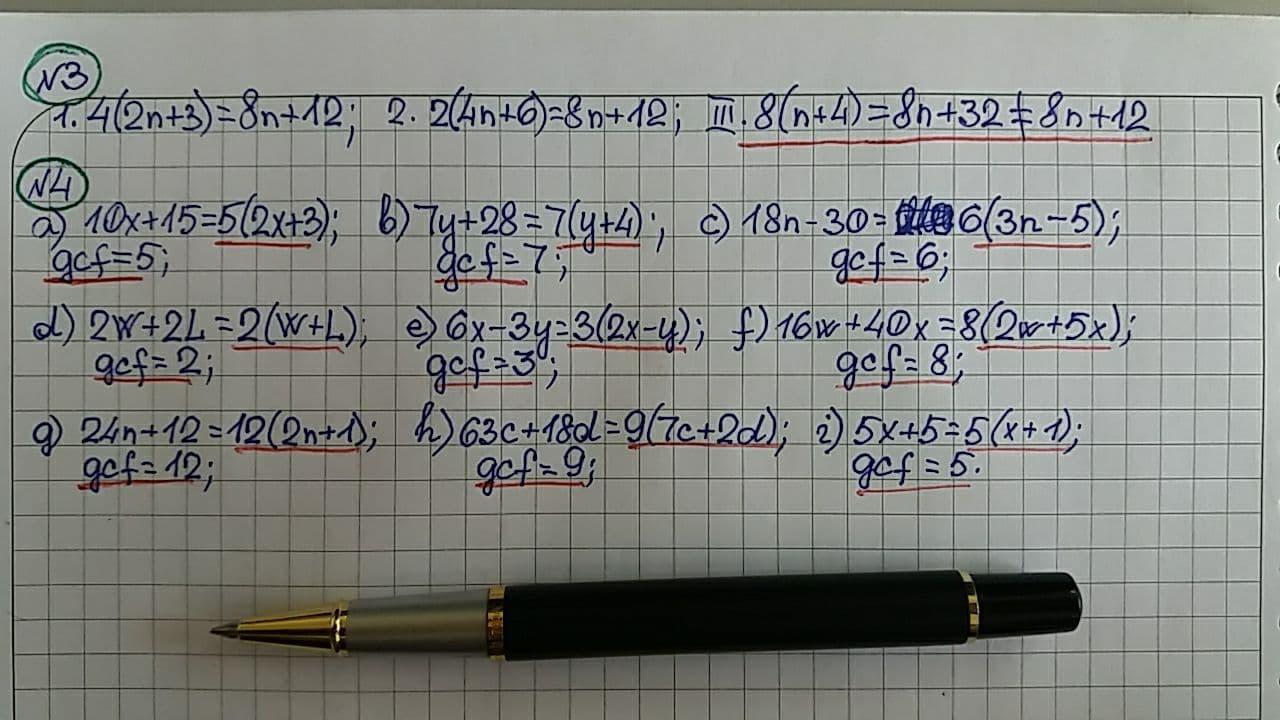 №3
1. 4(2n+3)=8n+12; 2. 2(4n+6)=8n+12; III. 8(n+4)=8n+32≠8n+12
№4
a) 10x+15=5(2x+3); b) 7y+28=7(y+4); c) 18n-30=6(3n-5);
gcf=5; gcf=7; gcf=6;
d) 2w+2L=2(w+L); e) 6x-3y=3(2x-y); f) 16w+40x=8(2w+5x);
gcf=2; gcf=3; gcf=8;
g) 24n+12=12(2n+1); h) 63c+18d=9(7c+2d); i) 5x+5=5(x+1);
gcf=12; gcf=9; gcf=5.